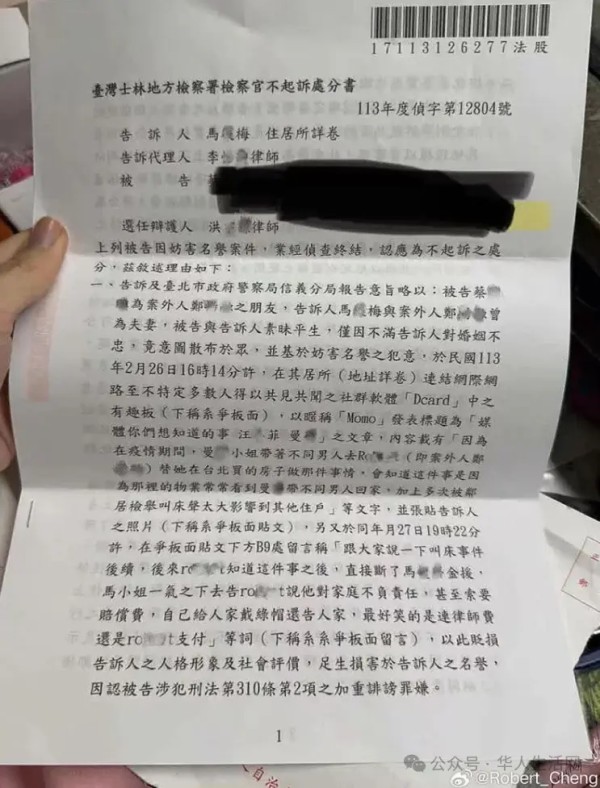 17113126277法股
臺灣士林地方檢察署檢察官不起訴處分書
113年度偵字第12804號
告 訴 人 馬 梅 住居所詳卷
告訴代理人 李 律師
被 告
選任辯護人 洪 律師
上列被告因妨害名譽案件，業經偵查終結，認應為不起訴之處
分，茲敘述理由如下：
一、告訴及臺北市政府警察局信義分局報告意旨略以：被告蔡
為案外人鄭 之朋友，告訴人馬 梅與案外人鄭 曾
為夫妻，被告與告訴人素昧平生，僅因不滿告訴人對婚姻不
忠，竟意圖散布於眾，並基於妨害名譽之犯意，於民國113
年2月26日16時14分許，在其居所（地址詳卷）連結網際網
路至不特定多數人得以共見共聞之社群軟體「Dcard」中之
有趣板（下稱系爭板面），以暱稱「Momo」發表標題為「媒
體你們想知道的事 汪 菲 曼 」之文章，內容載有「因為
在疫情期間，曼 小姐帶著不同男人去Ro （即案外人鄭
）替她在台北買的房子做那件事情，會知道這件事是因
為那裡的物業常常看到曼 帶不同男人回家，加上多次被鄰
居檢舉叫床聲太大影響到其他住戶」等文字，並張貼告訴人
之照片（下稱系爭板面貼文），另又於同年月27日19時22分
許，在爭板面貼文下方B9處留言稱「跟大家說一下叫床事件
後續，後來ro t知道這件事之後，直接斷了馬 金援，
馬小姐一氣之下去告ro t說他對家庭不負責任，甚至索要
賠償費，自己給人家戴綠帽還告人家，最好笑的是連律師費
還是ro t支付」等詞（下稱系系爭板面留言），以此貶損
告訴人之人格形象及社會評價，足生損害於告訴人之名譽，
因認被告涉犯刑法第310條第2項之加重誹謗罪嫌。
1
公众号·华人生活网
@Robert_Cheng